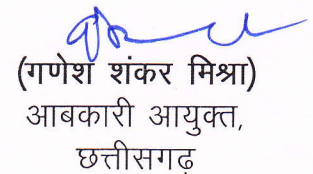 (गणेश शंकर मिश्रा)
आबकारी आयुक्त,
छत्तीसगढ़